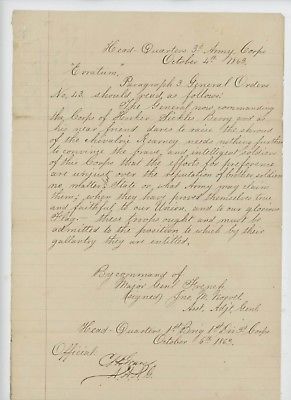 Head Quarters 3d Army Corps
October 4th 1863.
"Erratum,"
Paragraph 3 General Orders
No. 43. should read as follows:
The General now commanding
the Corps of Hooker Sickles Berry and as
his near friend dares to raise the shroud
of the chivalric Kearney needs nothing further
to convince the brave and intelligent soldiers
of this Corps that thy efforts for preference
are unjust over the reputation of brother soldiers
no matter what State or what Army may claim
them; when they have proved themselves true
and faithful to our Union, and to our glorious
Flag. these troops ought and must be
admitted to the position to which by their
gallantry they are entitled.
By command of
Major Genl French
(signed) Jno M Norvell
Asst. Adjt. Genl.
Head Quarters 1st Brig 1st Div 3d Corps
October 6th 1863.
Official.